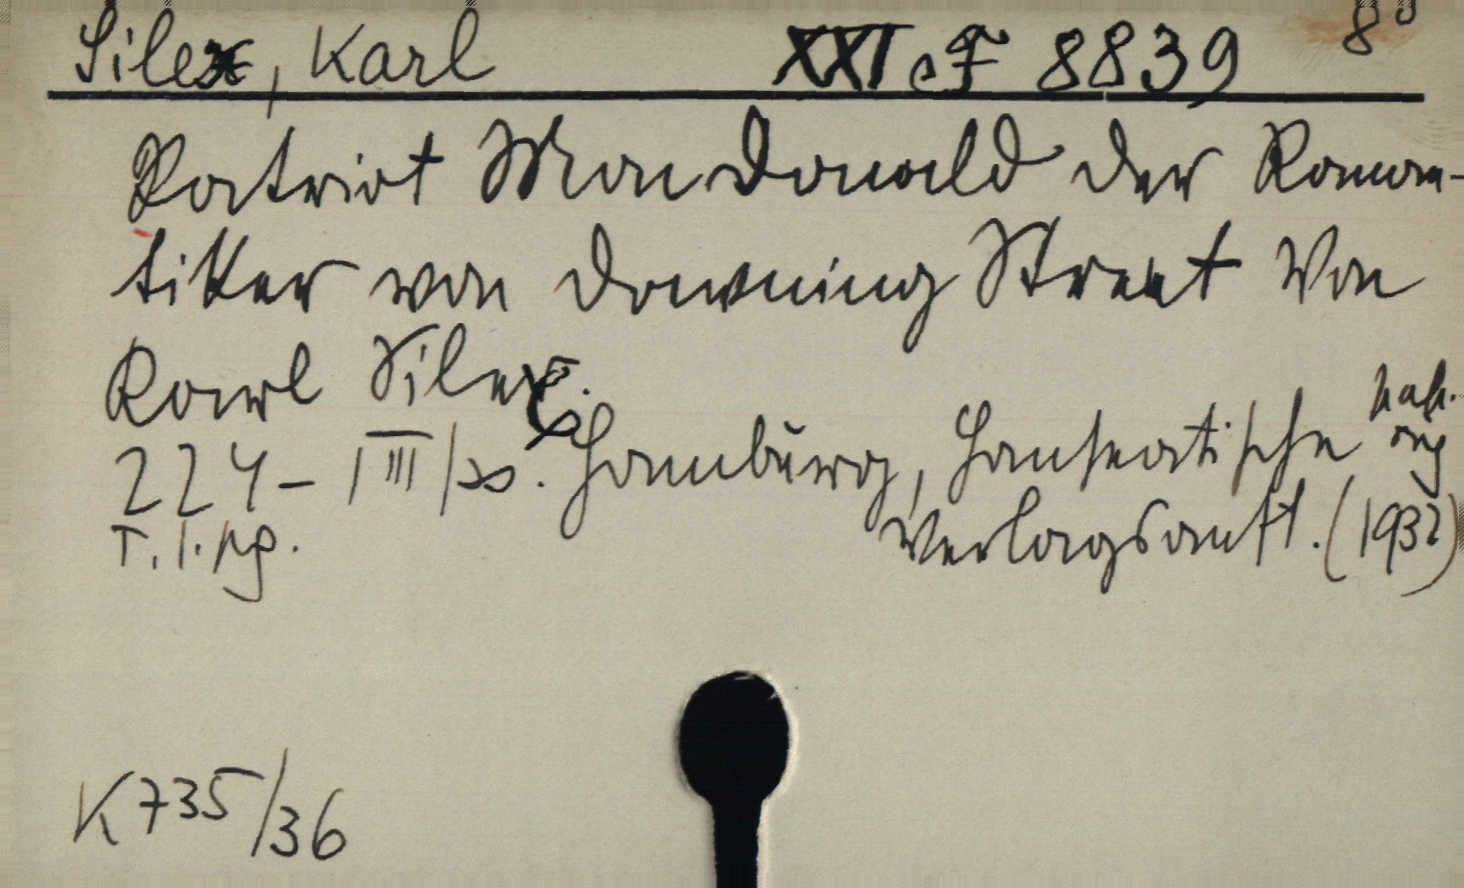 Silex, Karl XXI eF 8839 8°
Patriot MacDonald der Roman-
tiker von Downing Street Von
Karl Silex.
224 - I III/20. Hamburg, Hanseatische
T. I. Verlagsanst. (1932)
K 735/36